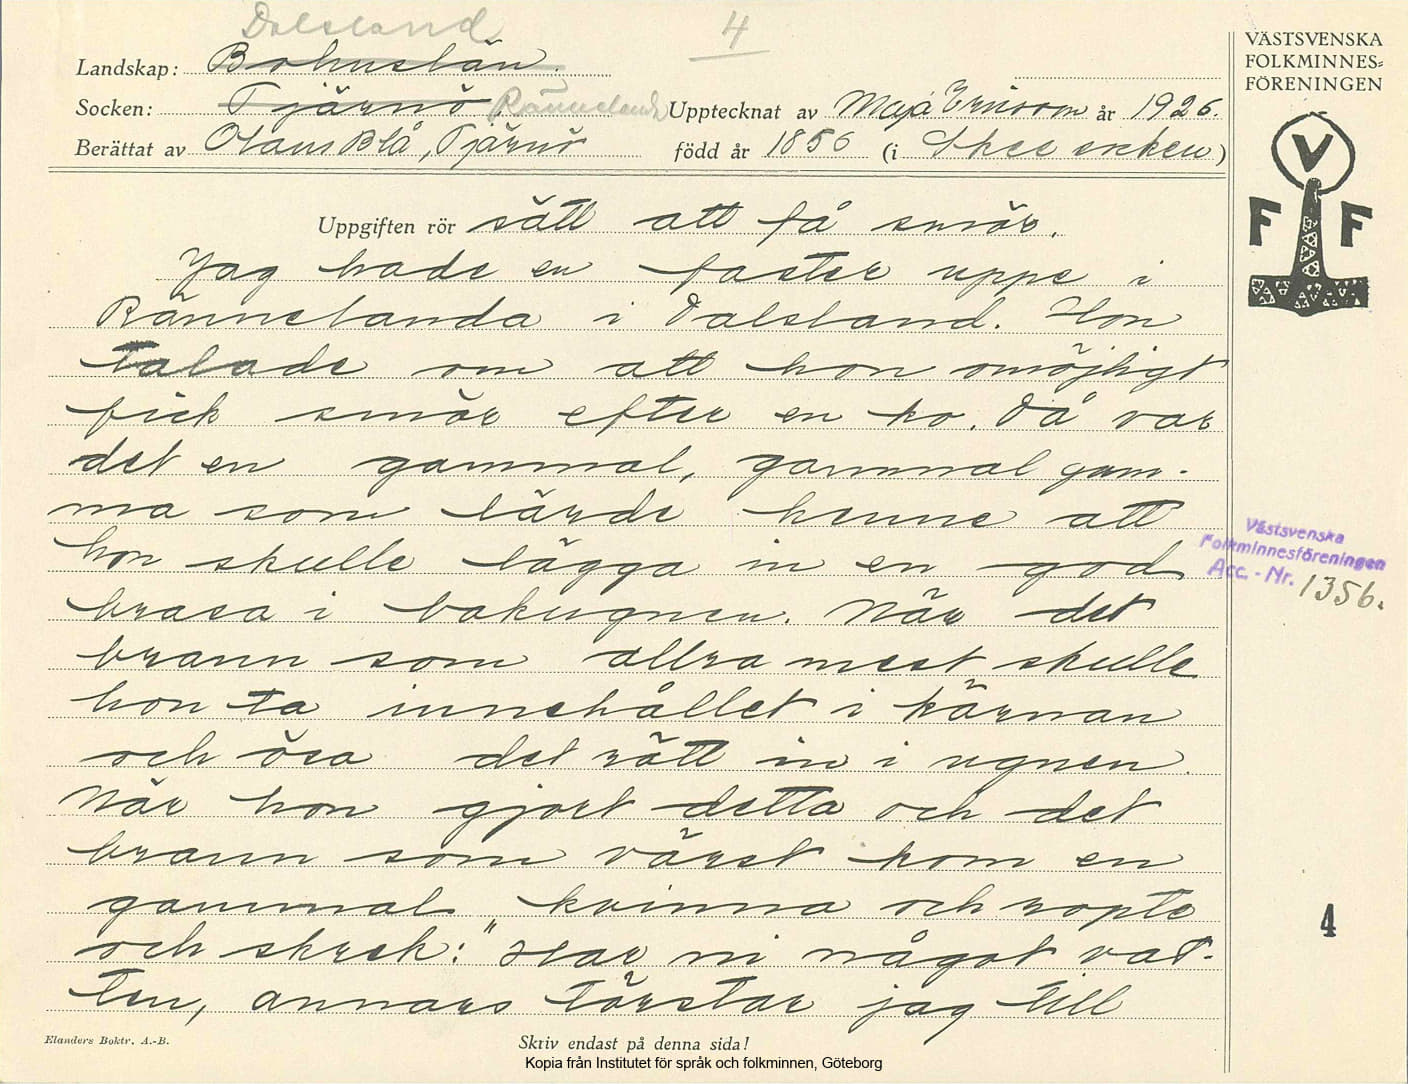 Dalsland
4
Landskap: Bohuslän.
Socken: Tjärnö Rännelanda Upptecknat av Maja Ericson år 1926.
Berättat av Olaus Blå, Tjärnö född år 1856 (i Skee socken)
VÄSTSVENSKA
FOLKMINNES=
FÖRENINGEN
V
F F
Uppgiften rör sätt att få smör.
Jag hade en faster uppe i
Rännelanda i Dalsland. Hon
talade om att hon omöjligt
fick smör efter en ko. Då var
det en gammal, gammal gum-
ma som lärde henne att
hon skulle lägga in en god
brasa i bakugnen. När det
brann som allra mest skulle
hon ta innehållet i kärnan
och ösa det rätt in i ugnen.
När hon gjort detta och det
brann som värst kom en
gammal kvinna och ropte
och skrek: "Har ni något vat-
ten, annars törstar jag till
Västsvenska
Folkminnesföreningen
Acc. - Nr. 1356.
4
Elanders Boktr. A.-B.
Skriv endast på denna sida!
Kopia från Institutet för språk och folkminnen, Göteborg